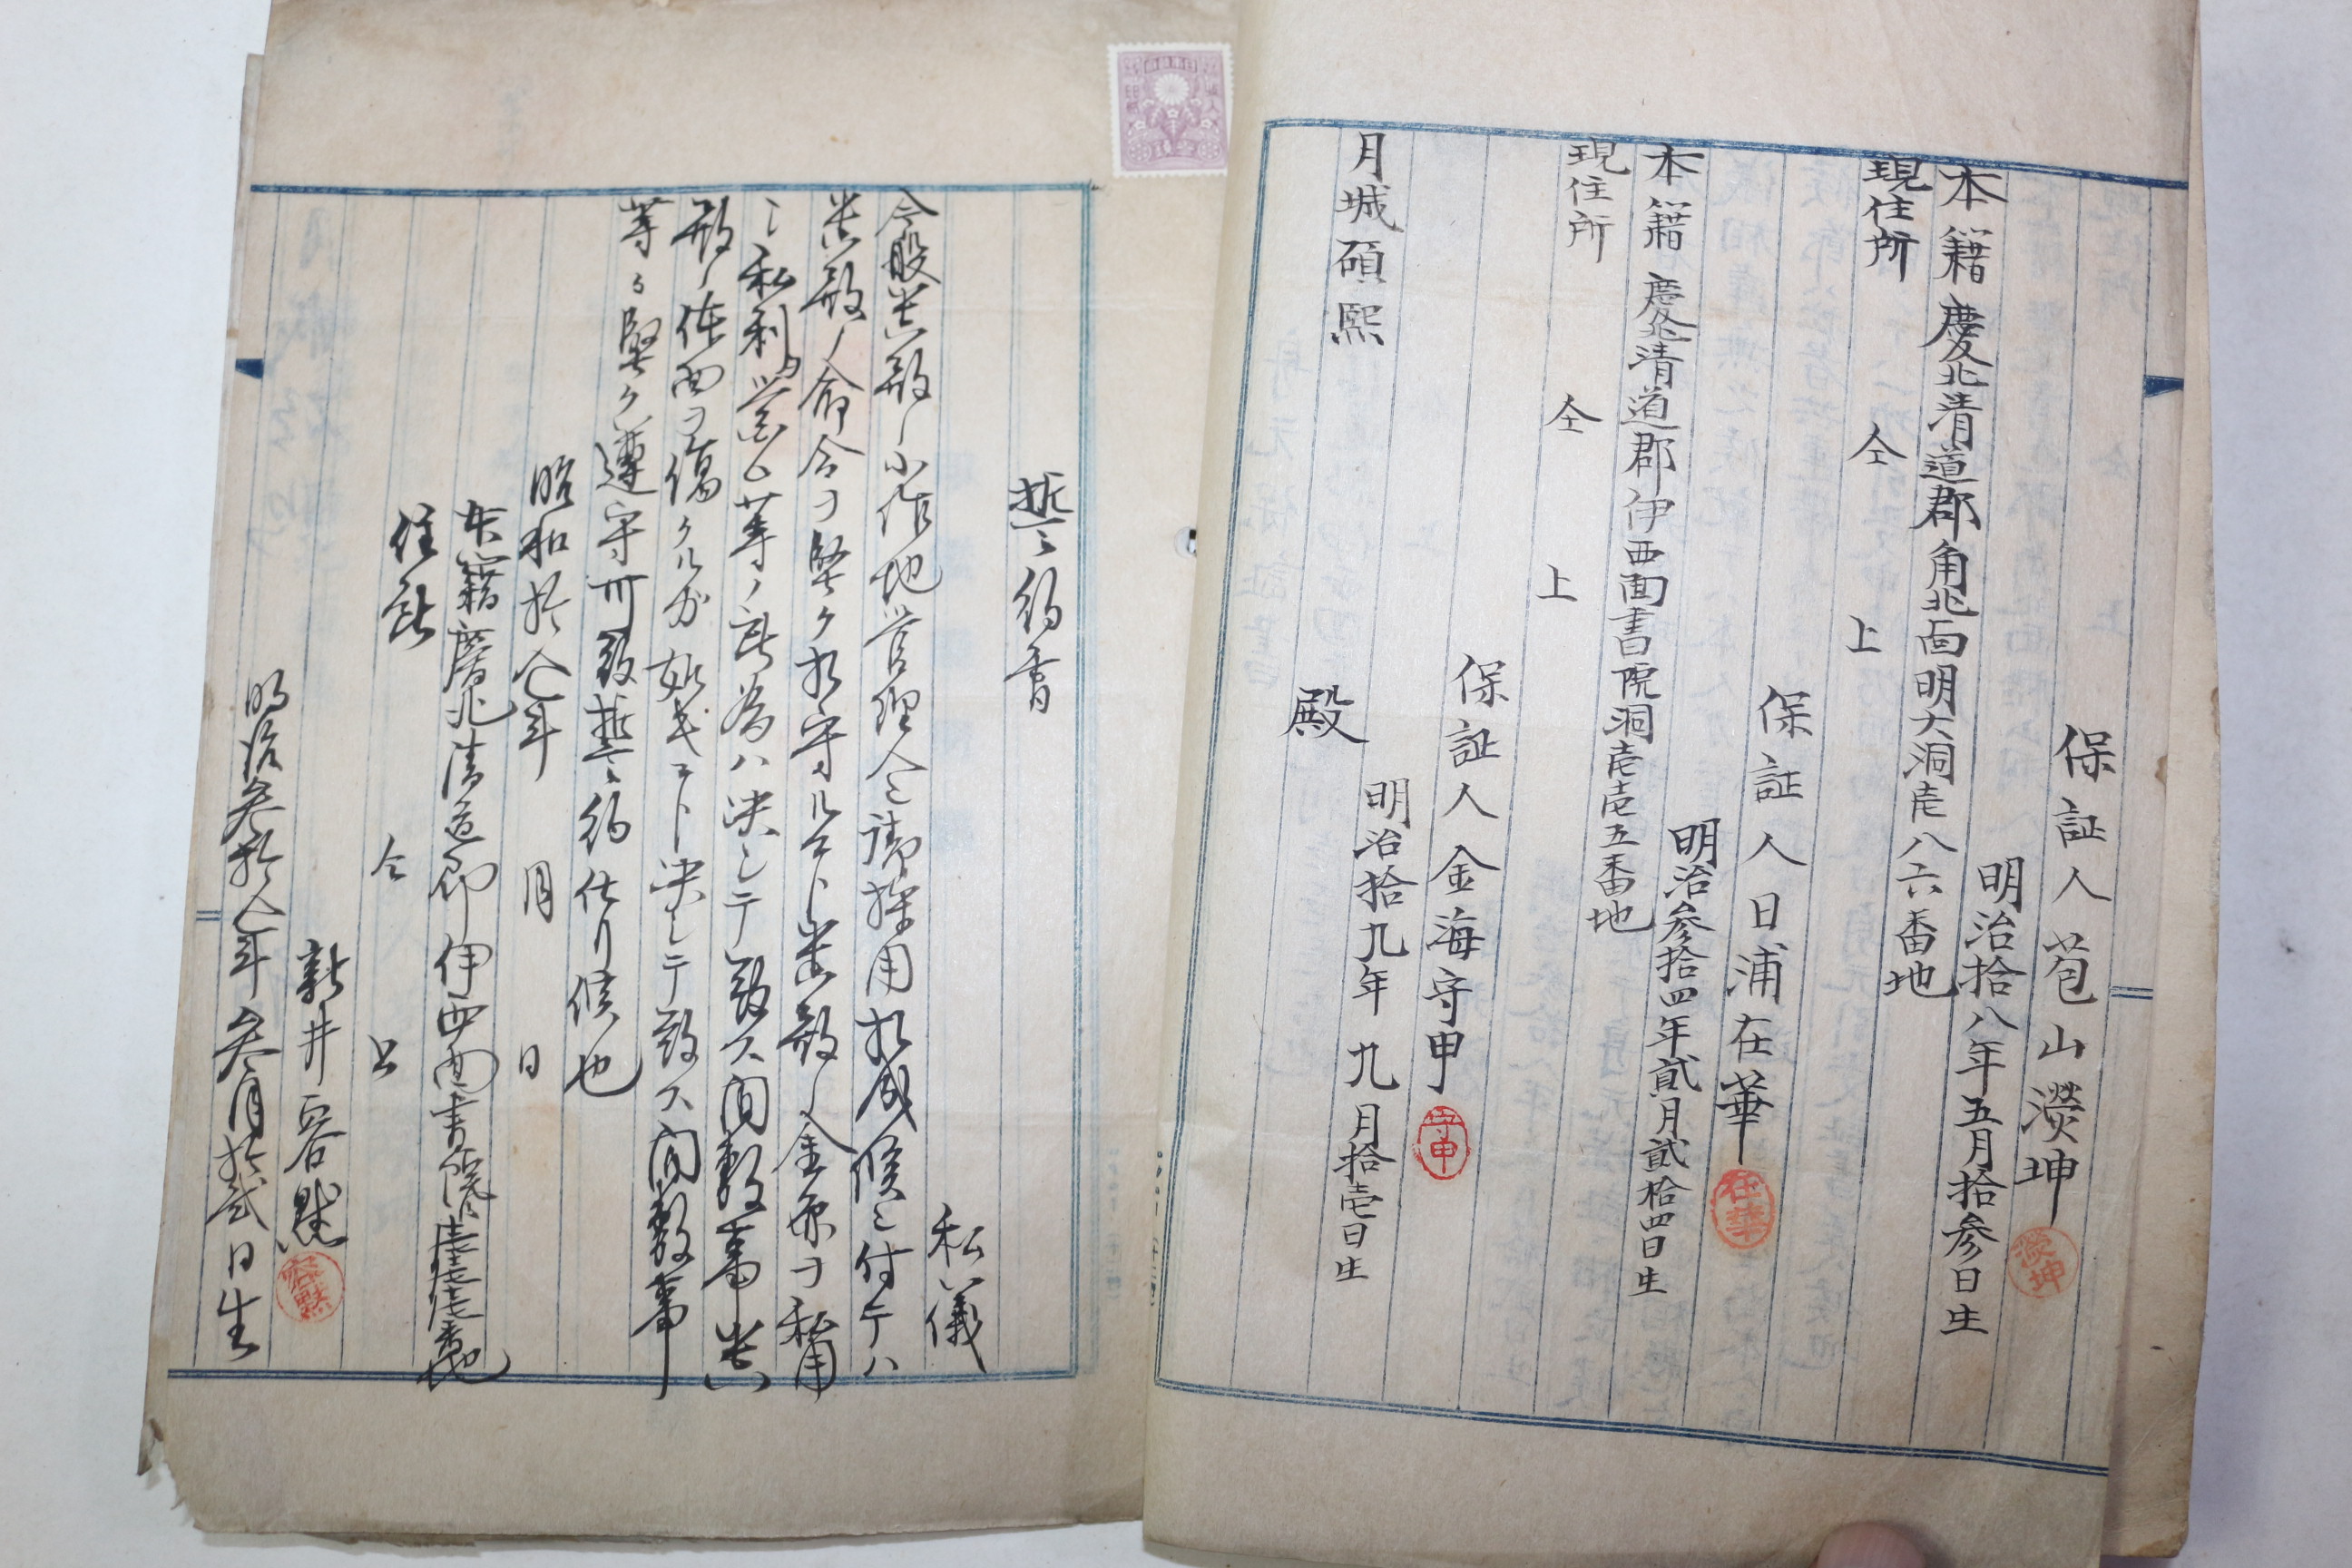 保証人 苞山濙坤
濙坤
明治拾八年五月拾参日生
本籍 慶北清道郡角北面明大洞壱八六番地
現住所 仝上
保証人 日浦在華
在華
明治参拾四年貳月貳拾四日生
本籍 慶北清道郡伊西面書院洞壱壱五番地
現住所 仝上
保証人 金海守甲
守甲
明治拾九年九月拾壱日生
月城碩熙
殿
誓約書
私儀
今般貴殿ノ小作地管理人ニ御採用相成候ニ付テハ
貴殿ノ命令ヲ堅ク相守ルコト貴殿ノ金品ヲ私用
シ私利ヲ営ム等ノ所為ハ決シテ致ス間敷事貴
殿ノ体面ヲ傷クルガ如キコト決シテ致ス間敷事
等ヲ堅ク遵守可致誓約仕リ候也
昭和拾八年 月 日
本籍 慶北清道郡伊西面書院洞 番地
住所 仝上
新井容黙
容黙
明治参拾八年参月拾貳日生